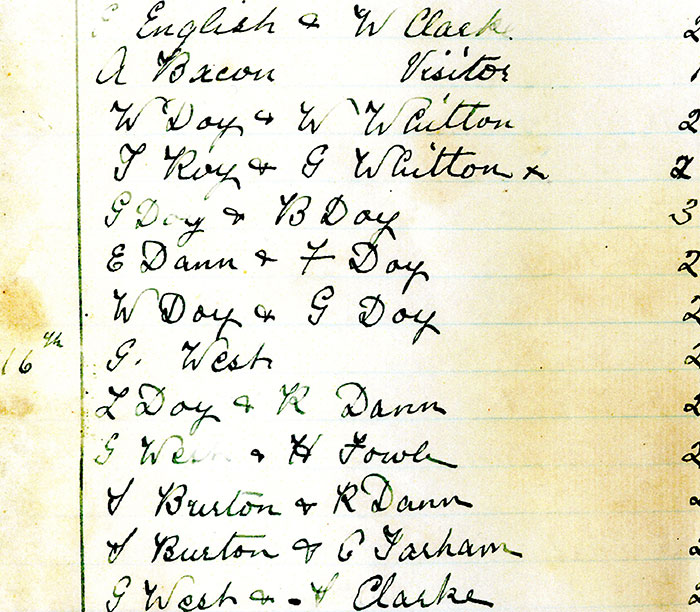 English & W Clark 2
A Bacon Visitor 1
W Doy & W Whitton 2
T Roy & G Whitton x 2
G Doy & B Doy 3
E Dann & F Doy 2
W Doy & G Doy 2
16th G. West 2
L Doy & K Dann 2
G West & H Fowle 2
Burton & R Dann 2
Burton & C Farham 2
G West & Clarke 2